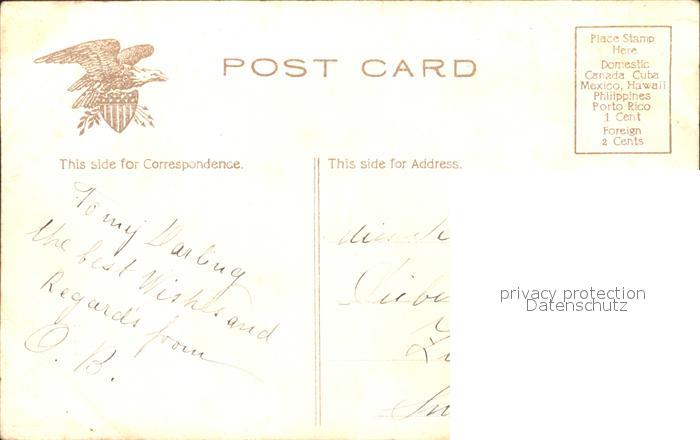 POST CARD
Place Stamp
Here
Domestic
Canada Cuba
Mexico, Hawaii
Philippines
Porto Rico
1 Cent
Foreign
2 Cents
This side for Correspondence.
This side for Address.
To my Darling
the best Wishes and
Regards from
O. B.
privacy protection
Datenschutz